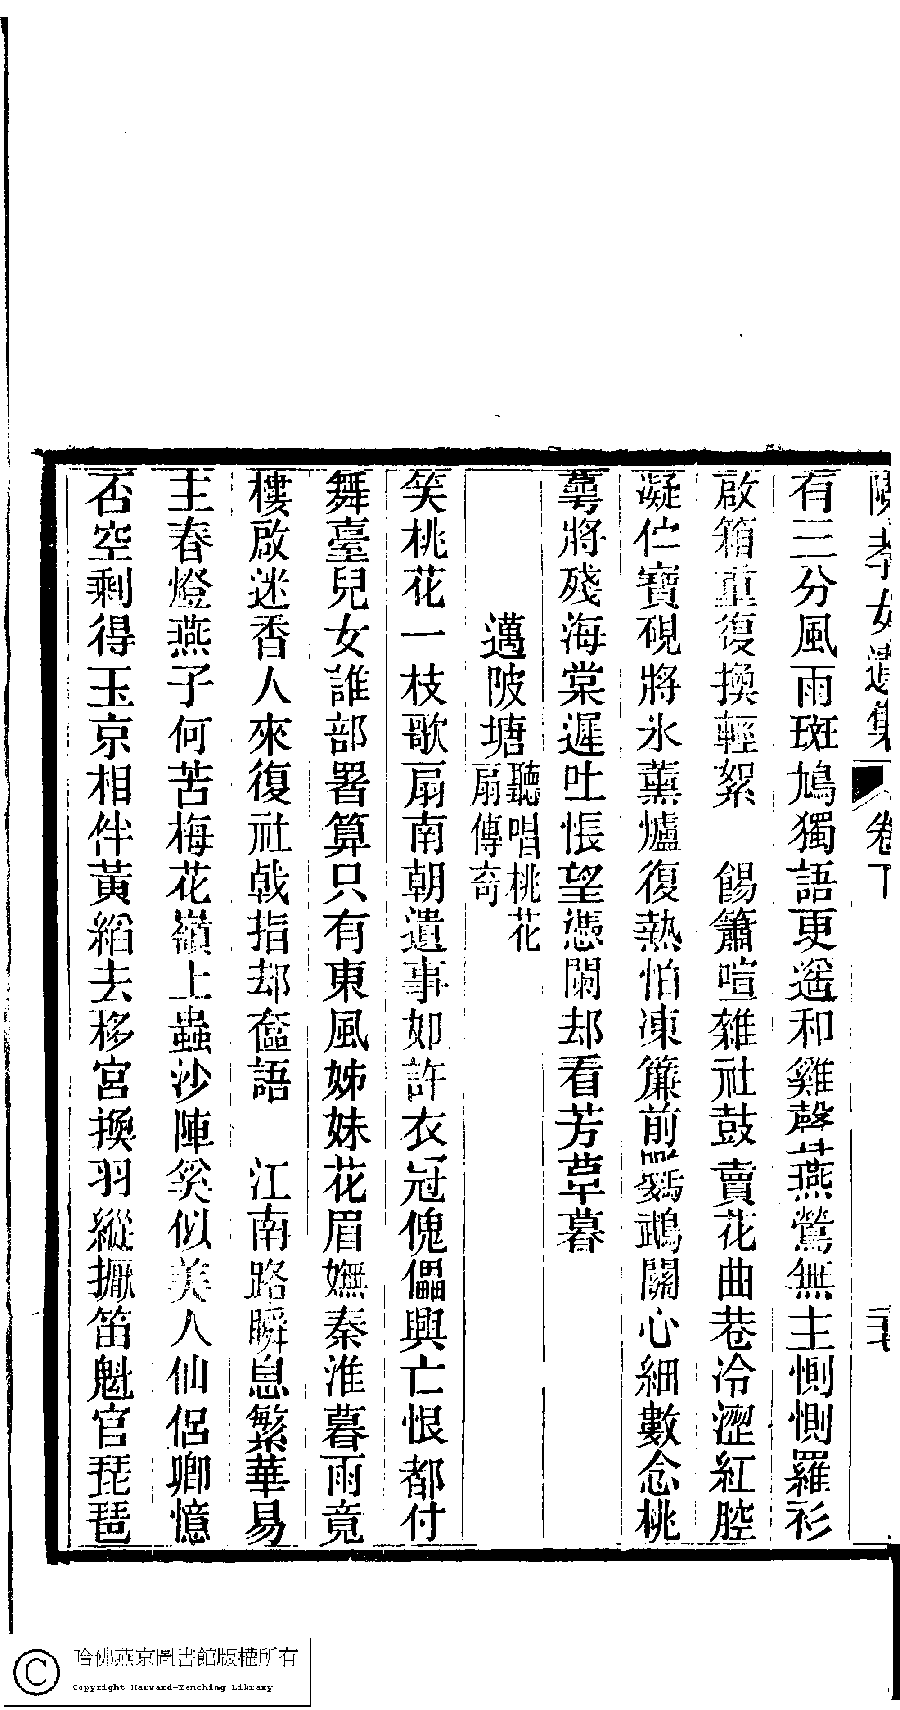 陳孝女遺集 卷下
有三分風雨斑鳩獨語更遙和雞聲燕鶯無主惻惻羅衫
啟箱重復換輕絮　餳簫喧雜社鼓賣花曲巷冷澀紅腔
凝伫寶硯將氷薰爐復熱怕凍簾前鸚鵡關心細數念桃
萼將殘海棠遲吐悵望憑闌却看芳草暮
邁陂塘聽唱桃花
扇傳奇
笑桃花一枝歌扇南朝遺事如許衣冠傀儡興亡恨都付
舞臺兒女誰部署算只有東風姊妹花眉嫵秦淮暮雨竟
樓啟迷香人來復社戟指却奩語　江南路瞬息繁華易
主春燈燕子何苦梅花嶺上蟲沙陣奚似美人仙侶卿憶
否空剩得玉京相伴黃縚去移宮換羽縱擫笛魁官琵琶
哈佛燕京圖書館版權所有
Copyright Harvard-Yenching Library